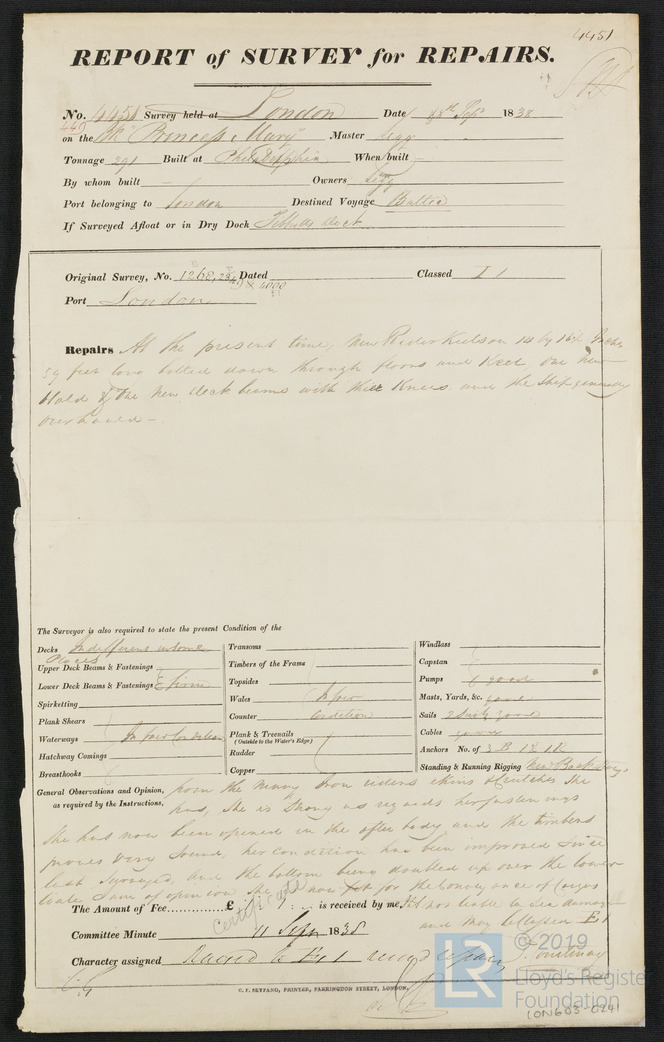 4451
REPORT of SURVEY for REPAIRS.
No. 4451 Survey held at London Date Sepr 1838
449
on the Bk Princess Mary Master Legg
Tonnage 291 Built at Philadelphia When built —
By whom built — Owners Legg
Port belonging to London Destined Voyage Baltic
If Surveyed Afloat or in Dry Dock Dock
Original Survey, No. 1268, Dated Classed I 1
Port London
Repairs At the present time, New Rider Keelson 14 by
59 feet long bolted down through floors and Keel, one new
and one new deck beams with their Knees and the Ship generally
overhauled —
The Surveyor is also required to state the present Condition of the
Decks Indifferent in some
places
Upper Deck Beams & Fastenings
Lower Deck Beams & Fastenings firm
Spirketting
Plank Shears
Waterways In fair Condition
Hatchway Comings
Breasthooks
Transoms
Timbers of the Frame
Topsides
Wales In fair
Counter Condition
Plank & Treenails
(Outside to the Water's Edge)
Rudder
Copper
Windlass
Capstan
Pumps good
Masts, Yards, &c. good
Sails 2 Suits good
Cables good
Anchors No. of 3 B 1 S 1 K
Standing & Running Rigging
General Observations and Opinion, from the many Iron riders She
as required by the Instructions, has, She is Strong as regards her fastenings
She has now been opened in the after body and the timbers
proves very Sound, her condition has been improved since
last Surveyed, and the bottom being doubled up over the lower
I am of opinion She is now fit for the Conveyance of Cargoes
The Amount of Fee............£ : : is received by me, not liable to Sea damage
and may be classed E 1
Certificate
Committee Minute 11 Sepr 1838
Character assigned E 1
C. F. SEYFANG, PRINTER, FARRINGDON STREET, LONDON.
LR
©2019
Lloyd's Register
Foundation
LON603-0241